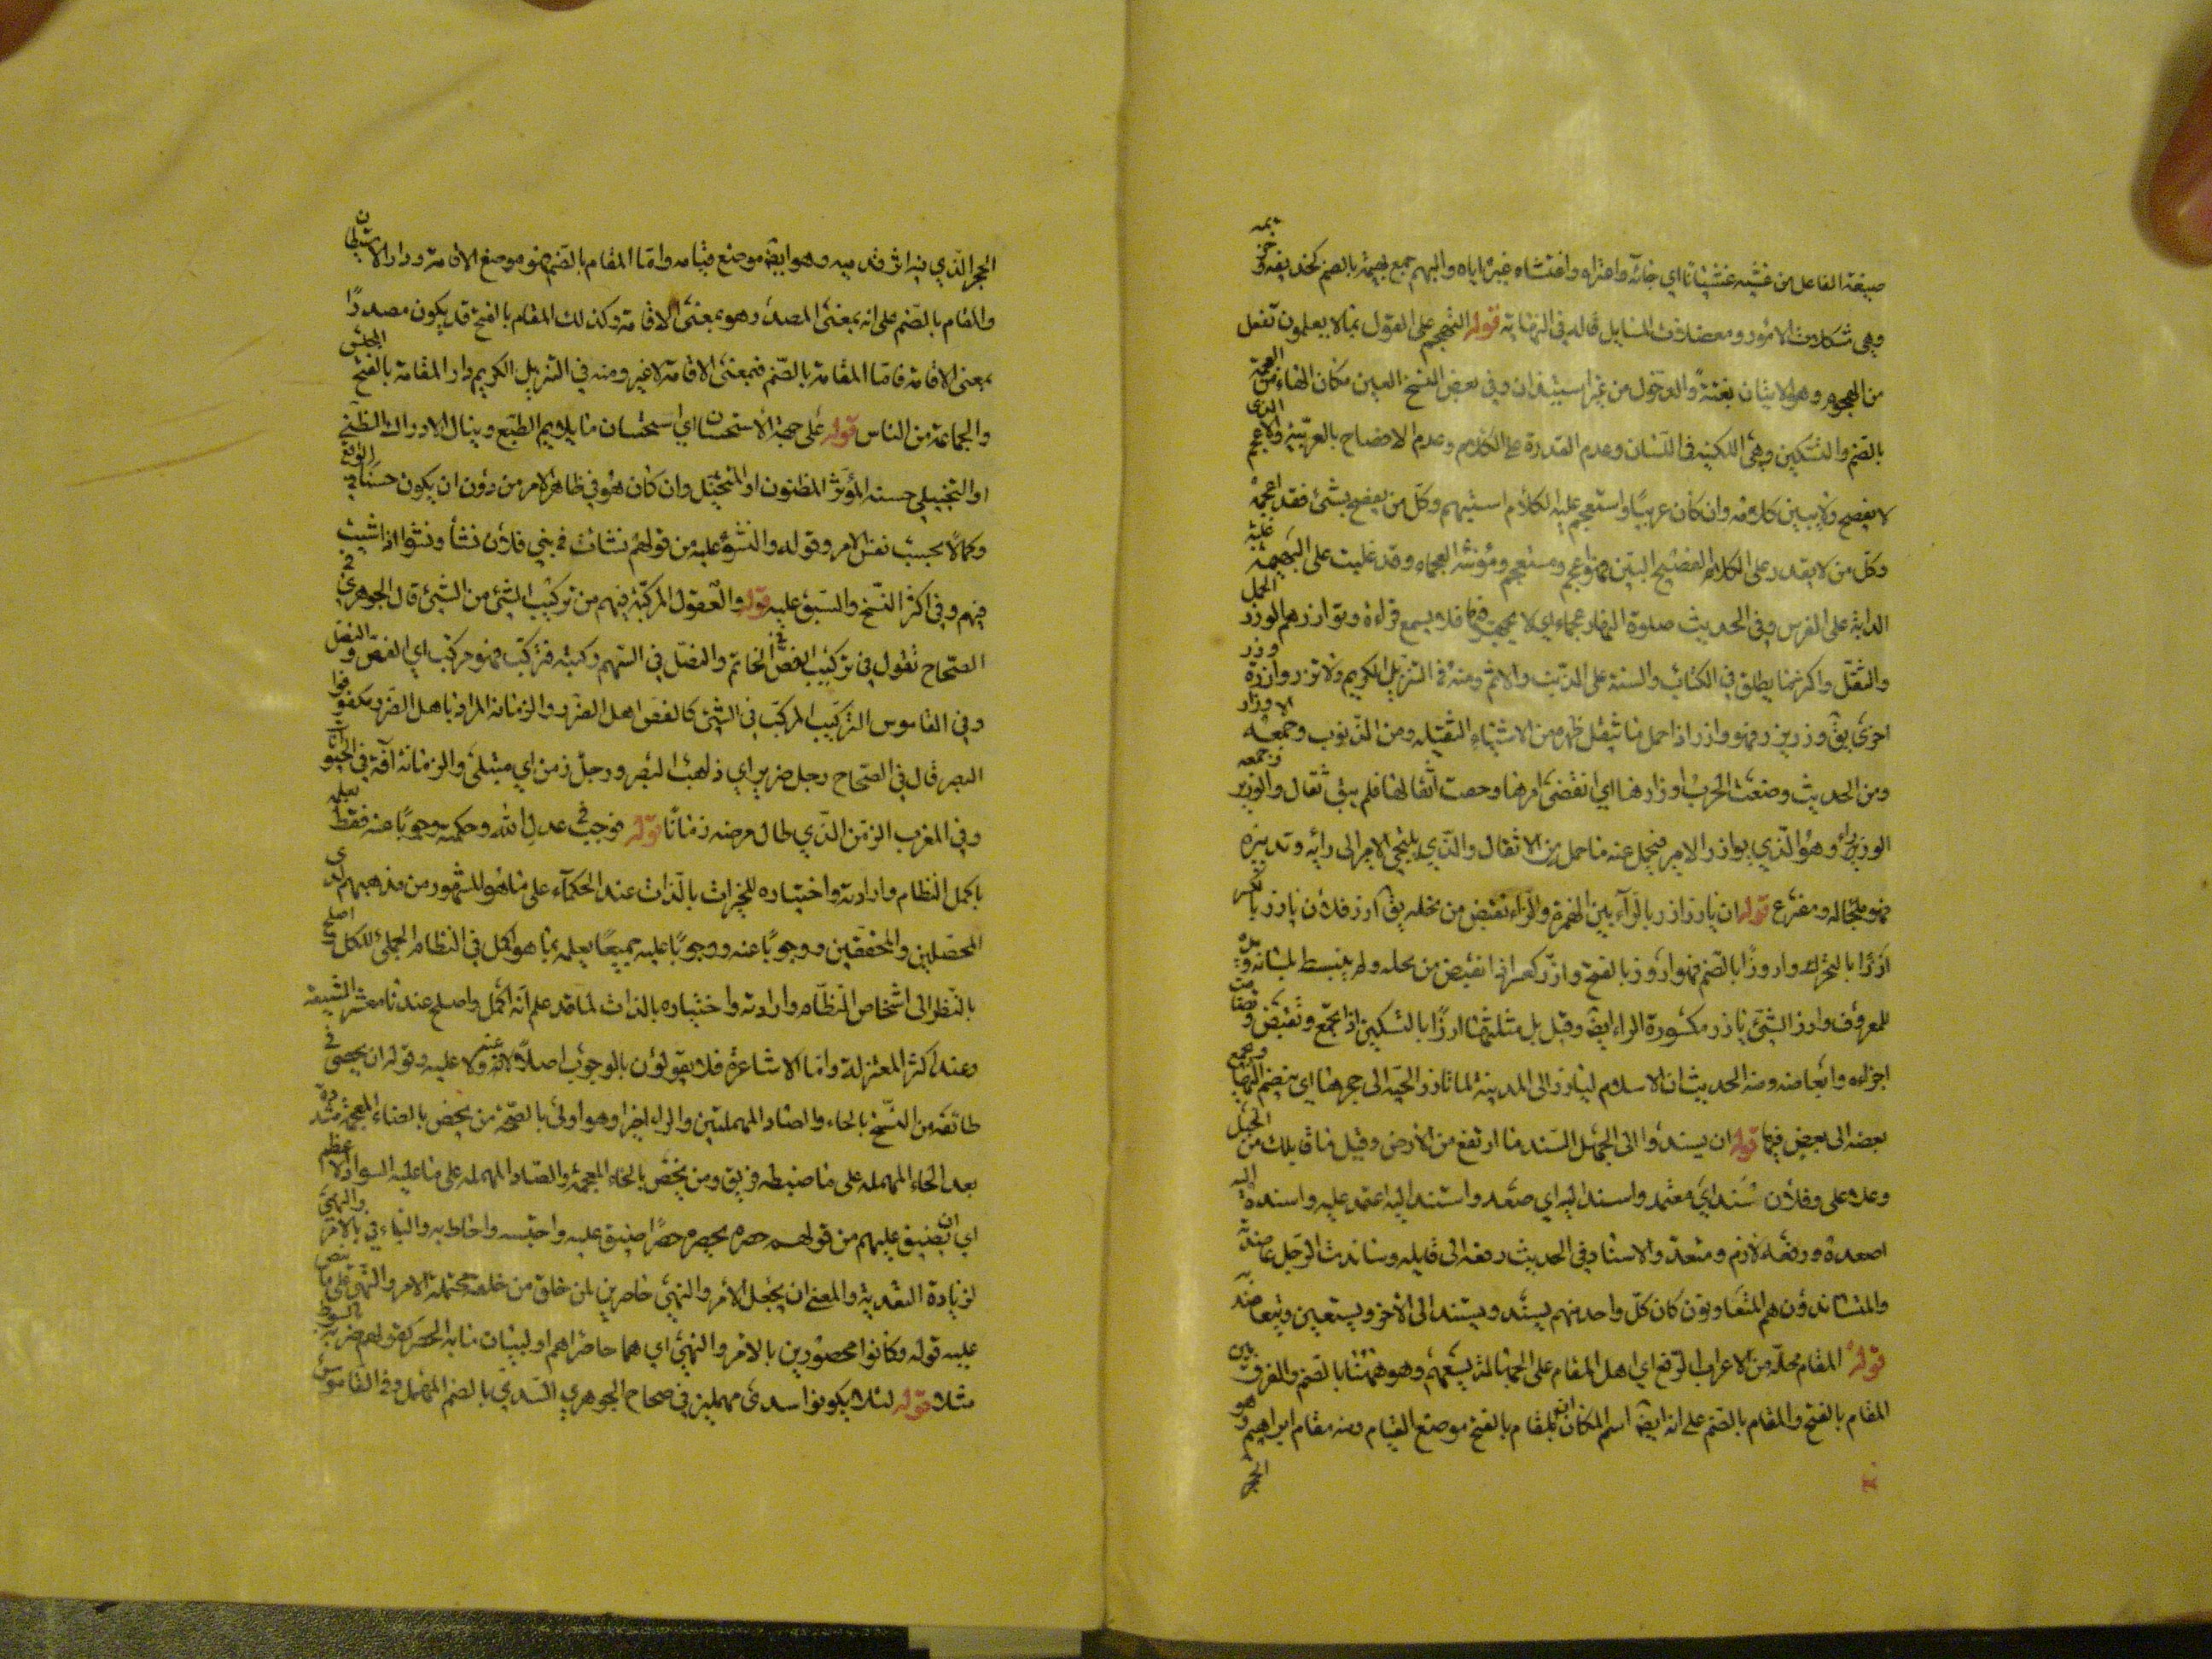 صيغة الفاعل من غشيه غشيانا اي جائه واعتراه واغتشاه غيره اياه والبهم جمع بهيمة بالضم
وهي مشكلات الامور ومعضلات المسايل قاله في النهاية قوله التهجم على القول بما لا يعلمون تفعل
من الهجوم وهو الاتيان بغتة والدخول من غير استيذان وفي بعض النسخ العين مكان الهاء من العجمة
بالضم والتسكين وهي اللكنة في اللسان وعدم القدرة على الكلام وعدم الافصاح بالعربية والاعجم الذي
لا يفصح ولا يبين كلامه وان كان عربيا واستعجم عليه الكلام استبهم وكل من لم يفصح بشئ فقد اعجمه
وكل من لا يقدر على الكلام الفصيح البين فهو اعجم ومستعجم ومؤنثه العجماء وقد غلبت على البهيمة غلبة
الدابة على الفرس وفي الحديث صلوة النهار عجماء اي لا يجهر فيها فلا يسمع قراءة وتوازرهم الوزر الحمل
والثقل واكثر ما يطلق في الكتاب والسنة على الذنب والاثم ومنه في التنزيل الكريم ولا تزر وازرة وزر
اخرى يق وزر يزر فهو وازر اذا حمل ما يثقل ظهره من الاشياء الثقيلة ومن الذنوب وجمعه الاوزار
ومن الحديث وضعت الحرب اوزارها اي انقضى امرها وخفت اثقالها فلم يبق ثقال والوزير وجمعه
الوزراء وهو الذي يوازر الامير فيحمل عنه ما حمل من الاثقال والذي يلتجي الامير الى رأيه وتدبيره
فهو ملجأ له ومفزع قوله ان يارز ارز بالراء بين الهمزة والزاء تقبض من بخله يق ارز فلان يارز بالكسر
ارزا بالتحرك واروزا بالضم فهو اروز بالفتح وارز كعمر اذا تقبض من بخله ولم ينبسط
للمعروف وارز الشئ يارز مكسورة الراء ايض وقيل بل مثلثتها ارزا بالتسكين اذا تجمع وتقبض
اجزاءه وابعاضه ومنه الحديث ان الاسلام ليارز الى المدينة كما تارز الحية الى جحرها اي ينضم اليها ويجمع
بعضه الى بعض فيها قوله ان يسندوا الى الجهل السند ما ارتفع من الارض وقيل ما قابلك من الجبل
وعلا على وفلان سند اي معتمد واسند اليه اي صعد واستند اليه اعتمد عليه واسنده اليه
اصعده ورفعه لازم ومتعد والاسناد في الحديث رفعه الى قايله وساندت الرجل عاضدته
والمتساندون هم المتعاونون كان كل واحد منهم يسند ويستند الى الاخر ويستعين ويتعاضد به
قوله المقام محله من الاعراب الرفع اي اهل المقام على الجهالة لم يسعهم وهو ههنا بالضم والفرق بين
المقام بالفتح والمقام بالضم على انه ايض اسم المكان ان المقام بالفتح موضع القيام ومنه مقام ابراهيم وهو
الحجر
الحجر الذي فيه اثر قدميه وهو ايض موضع قيامه واما المقام بالضم فهو موضع الاقامة ودار الاستيطان
والمقام بالضم على انه بمعنى المصدر وهو بمعنى الاقامة وكذلك المقام بالفتح قد يكون مصدرا
بمعنى الاقامة فاما المقامة بالضم فبمعنى الاقامة لا غير ومنه في التنزيل الكريم دار المقامة بالفتح المجلس
والجماعة من الناس قوله على جهة الاستحسان اي استحسان ما يلايم الطبع وينال الادراك الظني
او التخييلي حسنه المؤثر المظنون او المتخيل وان كان هو في ظاهر الامر من دون ان يكون حسنا في الواقع
وكمالا بحسب نفس الامر وقوله والنشؤ عليه من قولهم نشات في بني فلان نشأ ونشوا اذا شببت
فيهم وفي اكثر النسخ والسبق عليه قوله والعقول المركبة فيهم من تركيب الشئ من الشئ قال الجوهري في
الصحاح تقول في تركيب الفص في الخاتم والنصل في السهم ركبته فتركب فهو مركب اي الفص والنصل
وفي القاموس التركيب المركب في الشئ كالفص اهل الضرر والزمانة المراد باهل الضرر مكفوفوا
البصر قال في الصحاح رجل ضرير اي ذاهب البصر ورجل زمن اي مبتلى والزمانة آفة في الحيوانات
وفي المغرب الزمن الذي طال مرضه زمانا قوله فوجب في عدل الله وحكمته وجوبا عنه فقط
باكمل النظام وارادته واختياره للخيرات بالذات عند الحكماء على ما هو المشهور من مذهبهم لدى
المحصلين والمحققين ووجوبا عنه ووجوبا عليه جميعا بعلمه بما هو اكمل في النظام الجملي للكل واصلح
بالنظر الى اشخاص النظام وارادته واختياره بالذات لما قد علم انه اكمل واصلح عندنا معشر الشيعة
وعند اكثر المعتزلة واما الاشاعرة فلا يقولون بالوجوب اصلا لا عنه ولا عليه وقوله ان يحصى في
طائفة من النسخ بالحاء والصاد المهملتين والراء اخيرا وهو اولى بالصحة من يحض بالضاد المعجمة مشددة
بعد الحاء المهملة على ما ضبطه فريق ومن يخص بالخاء المعجمة والصاد المهملة على ما عليه السواد الاعظم
اي ان يضيق عليهم من قولهم حصره يحصره حصرا ضيق عليه واحتبسه واحاط به والباء في بالامر والنهي
لزيادة التعدية والمعنى ان يجعل الامر والنهي حاصرين لمن خلق من خلقه محتملة الامر والنهي على ما ينص
عليه قوله وكانوا محصورين بالامر والنهي اي هما حاصراهم او لبيان ما به الحصر كقولهم ضربته بالسوط
مثلا قوله لئلا يكونوا سدى مهملين في صحاح الجوهري السدى بالضم المهمل وفي القاموس